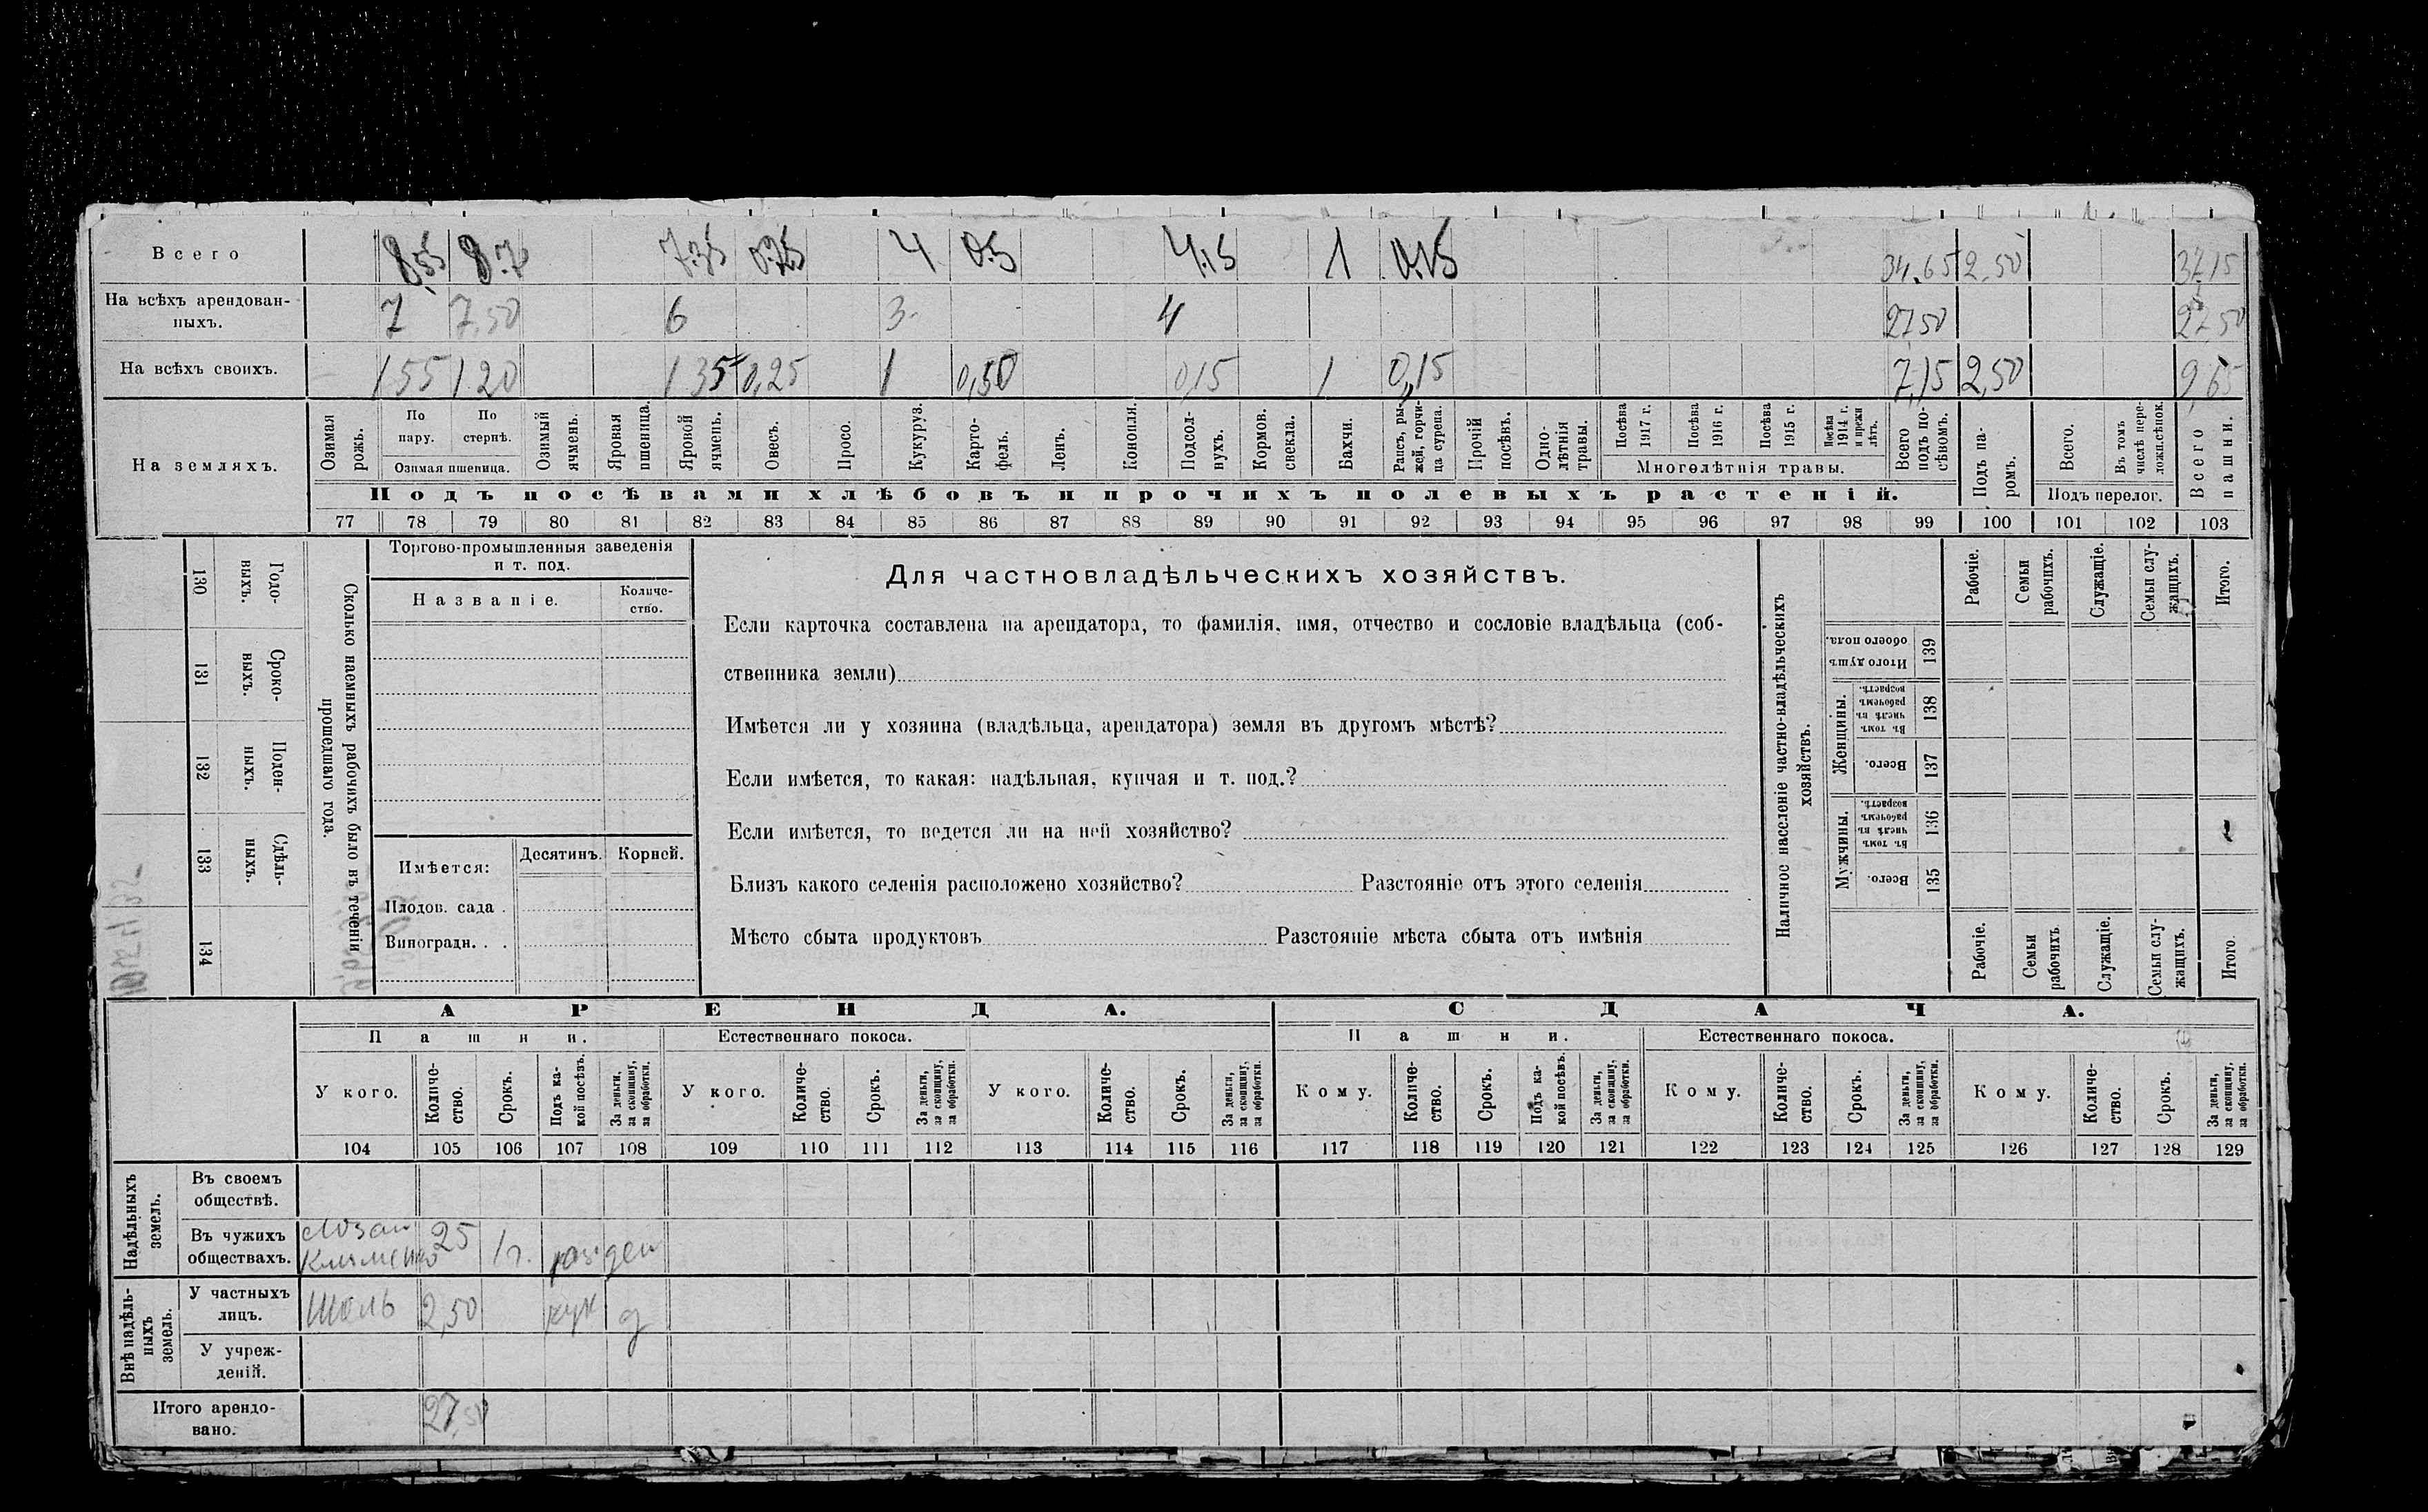 Всего 8.55 8.7 7.35 0.25 4 0.5 4.15 1 0.15 34.65 2.50 37.15
На всѣхъ арендован-
ныхъ. 7 7,50 6 3 4 27,50 27,50
На всѣхъ своихъ. 1 55 1 20 1 35 0,25 1 0,50 0,15 1 0,15 7,15 2,50 9,65
На земляхъ.
Озимая рожь.
По пару.
По стернѣ.
Озимая пшеница.
Озимый ячмень.
Яровая пшеница.
Яровой ячмень.
Овесъ.
Просо.
Кукуруз.
Карто-
фель.
Ленъ.
Конопля.
Подсол-
нухъ.
Кормов.
свекла.
Бахчи.
Рапсъ, ры-
жей, горчи-
ца сурепа.
Прочій
посѣвъ.
Одно-
лѣтнія
травы.
Посѣва
1917 г.
Посѣва
1916 г.
Посѣва
1915 г.
Посѣва
1914 г.
и прежн
лѣтъ.
Многолѣтнія травы.
Всего
подъ по-
сѣвомъ.
Подъ па-
ромъ.
Всего.
Въ томъ
числѣ пере-
ложн.сѣнок.
Подъ перелог.
Всего
пашни.
Подъ посѣвами хлѣбовъ и прочихъ полевыхъ растеній.
77 78 79 80 81 82 83 84 85 86 87 88 89 90 91 92 93 94 95 96 97 98 99 100 101 102 103
130 Годо-
ныхъ.
131 Сроко-
выхъ.
132 Поден-
ныхъ.
133 Сдѣль-
ныхъ.
134
Сколько наемныхъ рабочихъ было въ теченіи
прошедшаго года.
Торгово-промышленныя заведенія
и т. под.
Названіе.
Количе-
ство.
Имѣется:
Десятинъ.
Корней.
Плодов. сада .
Виноградн. . .
Для частновладѣльческихъ хозяйствъ.
Если карточка составлена на арендатора, то фамилія, имя, отчество и сословіе владѣльца (соб-
ственника земли)
Имѣется ли у хозяина (владѣльца, арендатора) земля въ другомъ мѣстѣ?
Если имѣется, то какая: надѣльная, купчая и т. под.?
Если имѣется, то ведется ли на ней хозяйство?
Близъ какого селенія расположено хозяйство? Разстояніе отъ этого селенія
Мѣсто сбыта продуктовъ Разстояніе мѣста сбыта отъ имѣнія
Наличное населеніе частно-владѣльческихъ
хозяйствъ.
Рабочіе.
Семьи
рабочихъ.
Служащіе.
Семьи слу-
жащихъ.
Итого.
Итого душъ
обоего пола.
139
Женщины.
Въ томъ
числѣ въ
рабочемъ
возрастѣ.
138
Всего.
137
Мужчины.
Въ томъ
числѣ въ
рабочемъ
возрастѣ.
136
Всего.
135
Рабочіе.
Семьи
рабочихъ
Служащіе.
Семьи слу-
жащихъ.
Итого.
АРЕНДА. СДАЧА.
Пашни. Естественнаго покоса. Пашни. Естественнаго покоса.
У кого.
Количе-
ство.
Срокъ.
Подъ ка-
кой посѣвъ.
За деньги,
за скопщину,
за обработки.
У кого.
Количе-
ство.
Срокъ.
За деньги,
за скопщину,
за обработки.
У кого.
Количе-
ство.
Срокъ.
За деньги,
за скопщину,
за обработки.
Кому.
Количе-
ство.
Срокъ.
Подъ ка-
кой посѣвъ.
За деньги,
за скопщину,
за обработки.
Кому.
Количе-
ство.
Срокъ.
За деньги,
за скопщину,
за обработки.
Кому.
Количе-
ство.
Срокъ.
За деньги,
за скопщину,
за обработки.
104 105 106 107 108 109 110 111 112 113 114 115 116 117 118 119 120 121 122 123 124 125 126 127 128 129
Надѣльныхъ
земель.
Въ своемъ
обществѣ.
Въ чужихъ
обществахъ. 25 1г. ден
Внѣ надѣль-
ныхъ
земель.
У частныхъ
лицъ. 2,50 кук д
У учреж-
деній.
Итого арендо-
вано. 27,50